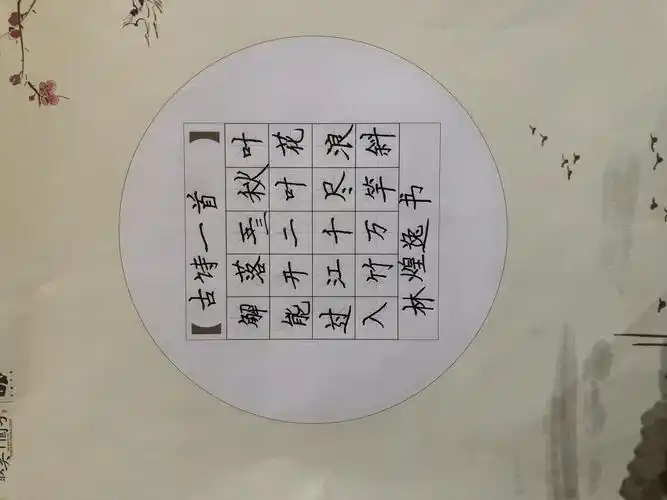 【古诗一首】
解落三秋叶
能开二叶花
过江十尽浪
入竹万竿斜
林煌逸书